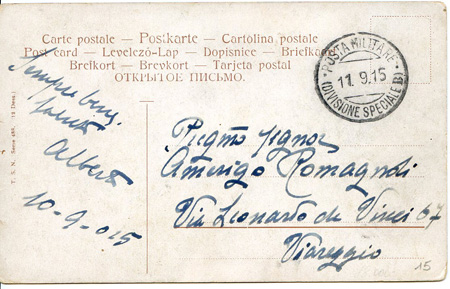 Carte postale — Postkarte — Cartolina postale
Post card — Levelező-Lap — Dopisnice — Briefkaart
Brefkort — Brevkort — Tarjeta postal
ОТКРЫТОЕ ПИСЬМО.
POSTA MILITARE
11.9.15
(DIVISIONE SPECIALE B)
Sempre bene.
Alberto
10-9-015
T. S. N. Serie
Signor
Amerigo Romagnoli
Via Leonardo da Vinci 67
Viareggio
15